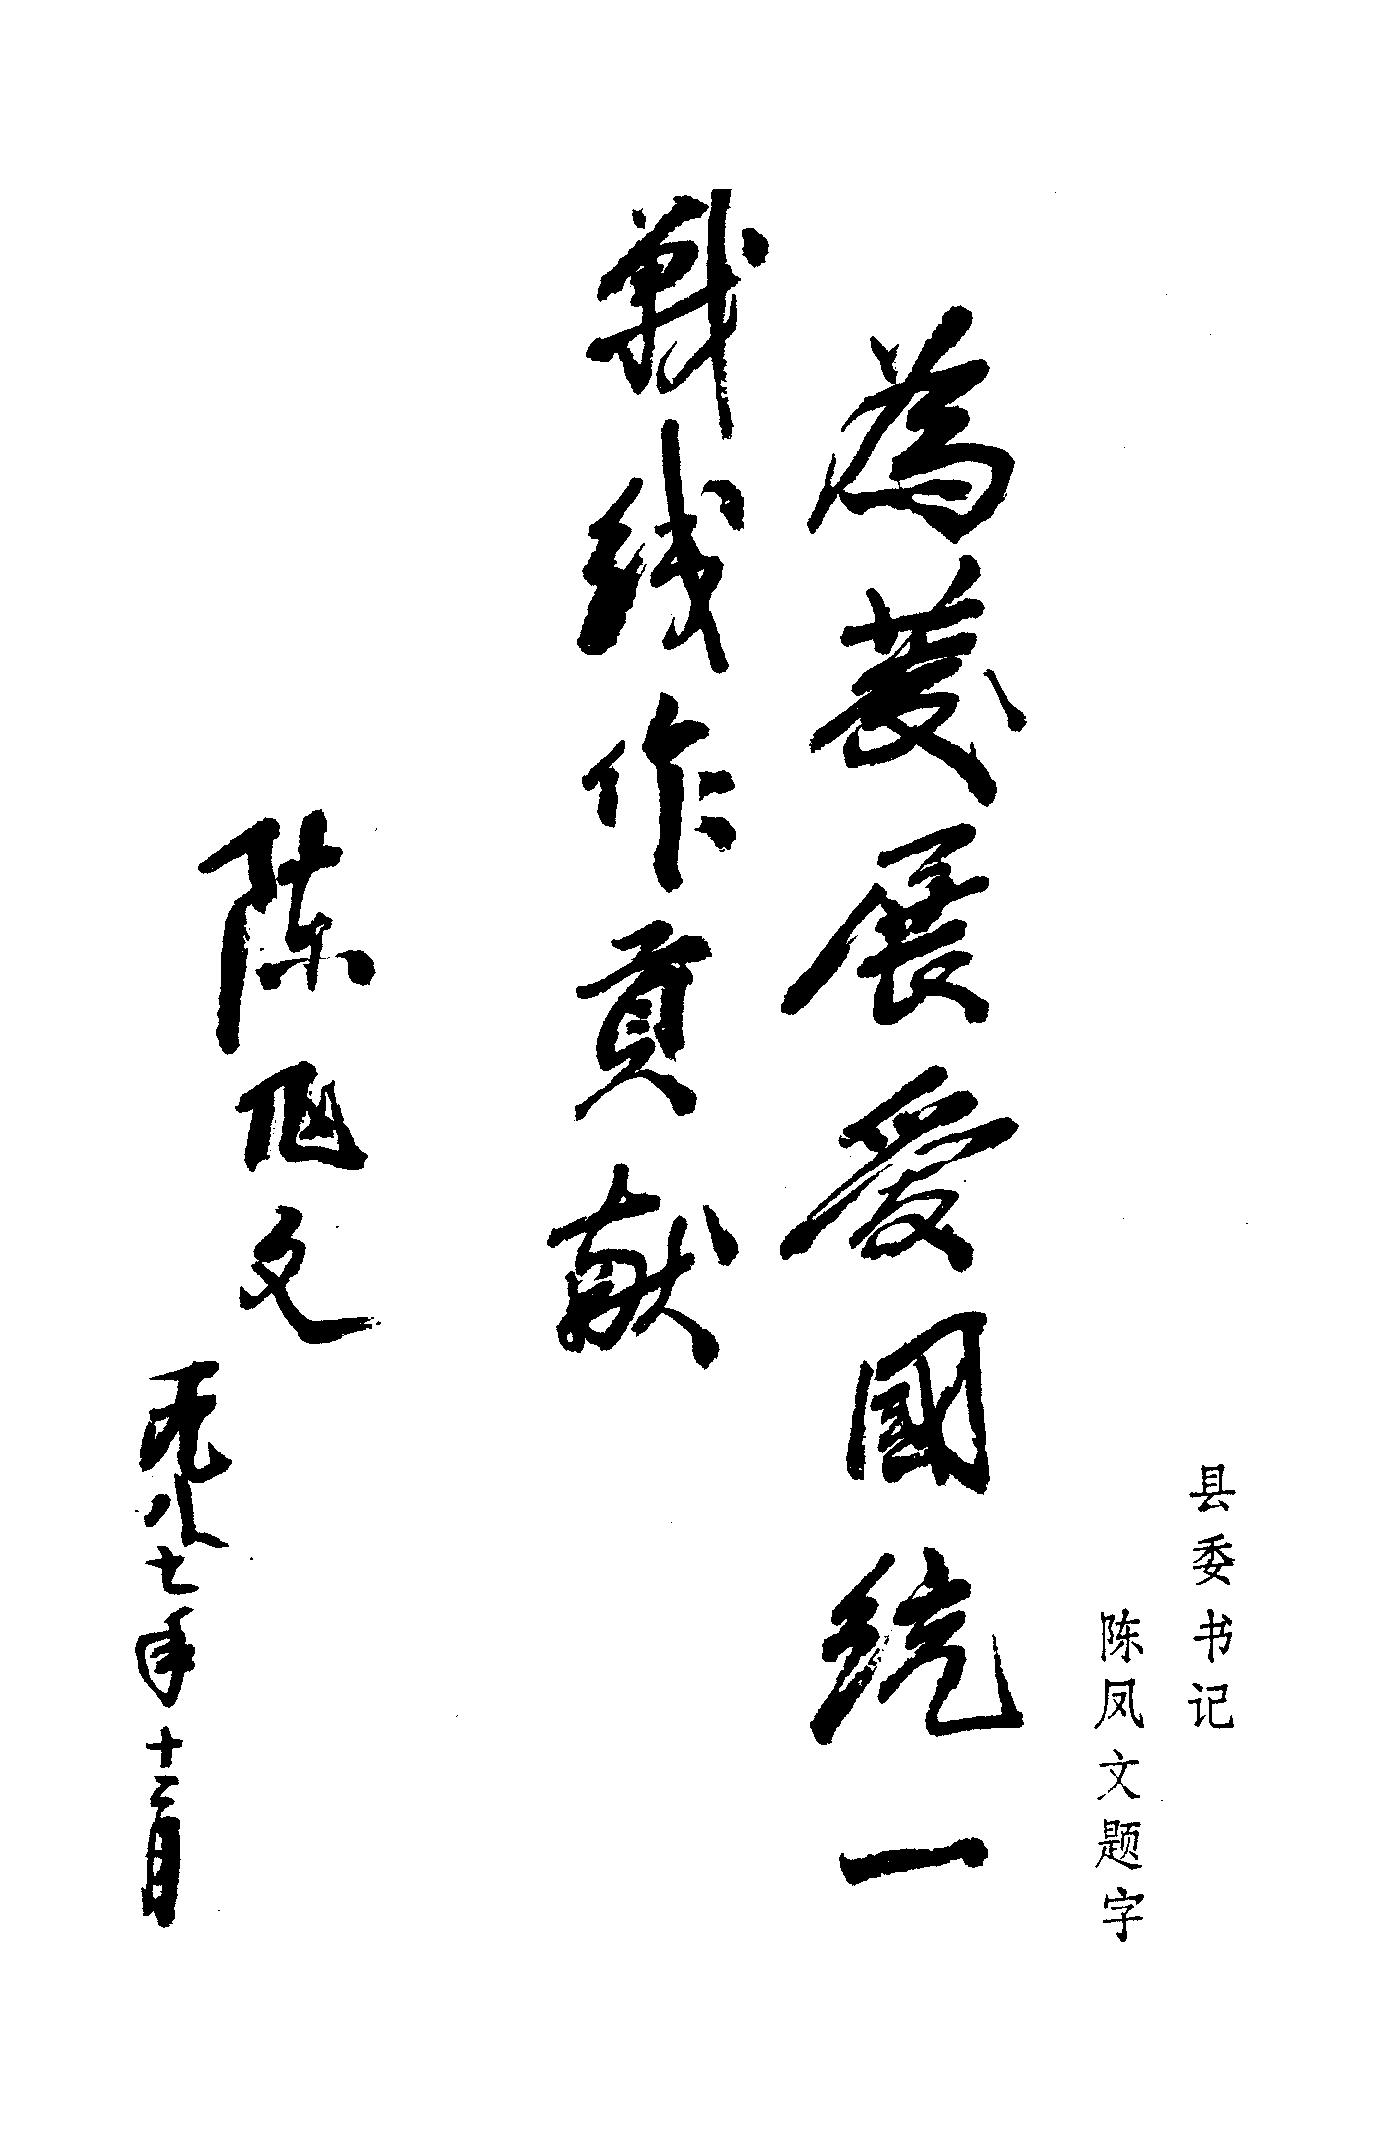 县委书记
陈凤文题字
為發展爱國统一
战线作貢献
陈凤文
一九八七年十二月